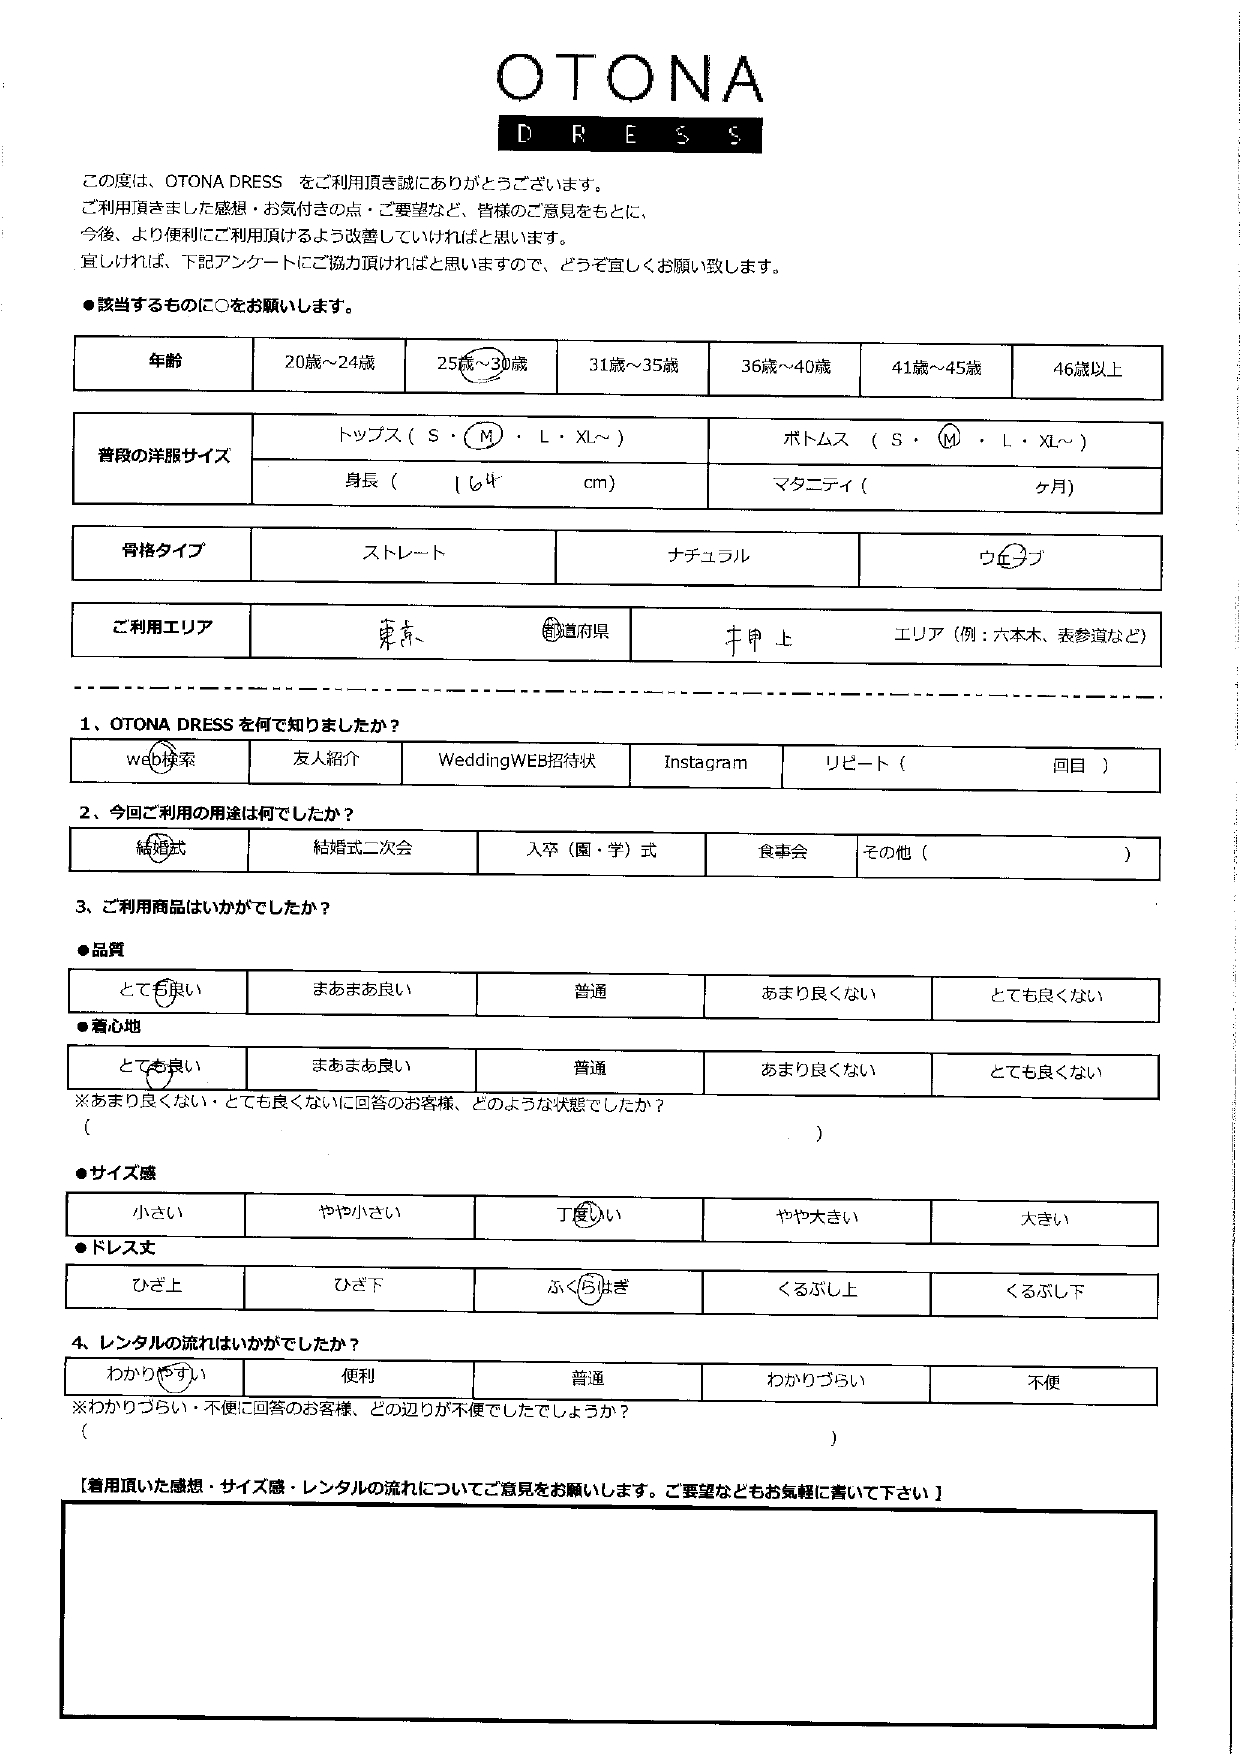 OTONA
DRESS
この度は、OTONA DRESS　をご利用頂き誠にありがとうございます。
ご利用頂きました感想・お気付きの点・ご要望など、皆様のご意見をもとに、
今後、より便利にご利用頂けるよう改善していければと思います。
宜しければ、下記アンケートにご協力頂ければと思いますので、どうぞ宜しくお願い致します。
●該当するものに○をお願いします。
年齢 20歳～24歳 25歳～30歳 31歳～35歳 36歳～40歳 41歳～45歳 46歳以上
普段の洋服サイズ トップス ( S ・ M ・ L ・ XL～ ) ボトムス ( S ・ M ・ L ・ XL～ )
身長 ( 164 cm) マタニティ ( ヶ月)
骨格タイプ ストレート ナチュラル ウェーブ
ご利用エリア 東京 都道府県 押上 エリア（例：六本木、表参道など）
1、OTONA DRESS を何で知りましたか？
web検索 友人紹介 WeddingWEB招待状 Instagram リピート（ 回目 ）
2、今回ご利用の用途は何でしたか？
結婚式 結婚式二次会 入卒（園・学）式 食事会 その他（ ）
3、ご利用商品はいかがでしたか？
●品質
とても良い まあまあ良い 普通 あまり良くない とても良くない
●着心地
とても良い まあまあ良い 普通 あまり良くない とても良くない
※あまり良くない・とても良くないに回答のお客様、どのような状態でしたか？
( )
●サイズ感
小さい やや小さい 丁度いい やや大きい 大きい
●ドレス丈
ひざ上 ひざ下 ふくらはぎ くるぶし上 くるぶし下
4、レンタルの流れはいかがでしたか？
わかりやすい 便利 普通 わかりづらい 不便
※わかりづらい・不便に回答のお客様、どの辺りが不便でしたでしょうか？
( )
【着用頂いた感想・サイズ感・レンタルの流れについてご意見をお願いします。ご要望などもお気軽に書いて下さい 】